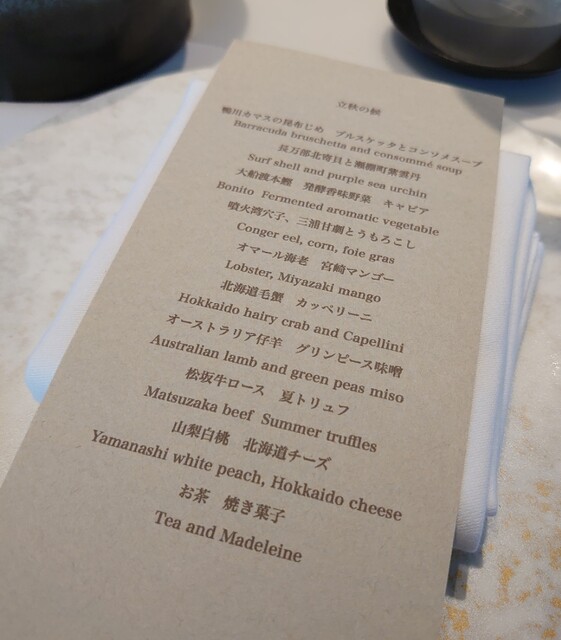 立秋の候
鴨川カマスの昆布じめ　ブルスケッタとコンソメスープ
Barracuda bruschetta and consommé soup
長万部北寄貝と瀬棚町紫雲丹
Surf shell and purple sea urchin
大船渡本鰹　発酵香味野菜　キャビア
Bonito Fermented aromatic vegetable
噴火湾穴子、三浦甘劇とうもろこし
Conger eel, corn, foie gras
オマール海老　宮崎マンゴー
Lobster, Miyazaki mango
北海道毛蟹　カッペリーニ
Hokkaido hairy crab and Capellini
オーストラリア仔羊　グリンピース味噌
Australian lamb and green peas miso
松坂牛ロース　夏トリュフ
Matsuzaka beef Summer truffles
山梨白桃　北海道チーズ
Yamanashi white peach, Hokkaido cheese
お茶　焼き菓子
Tea and Madeleine